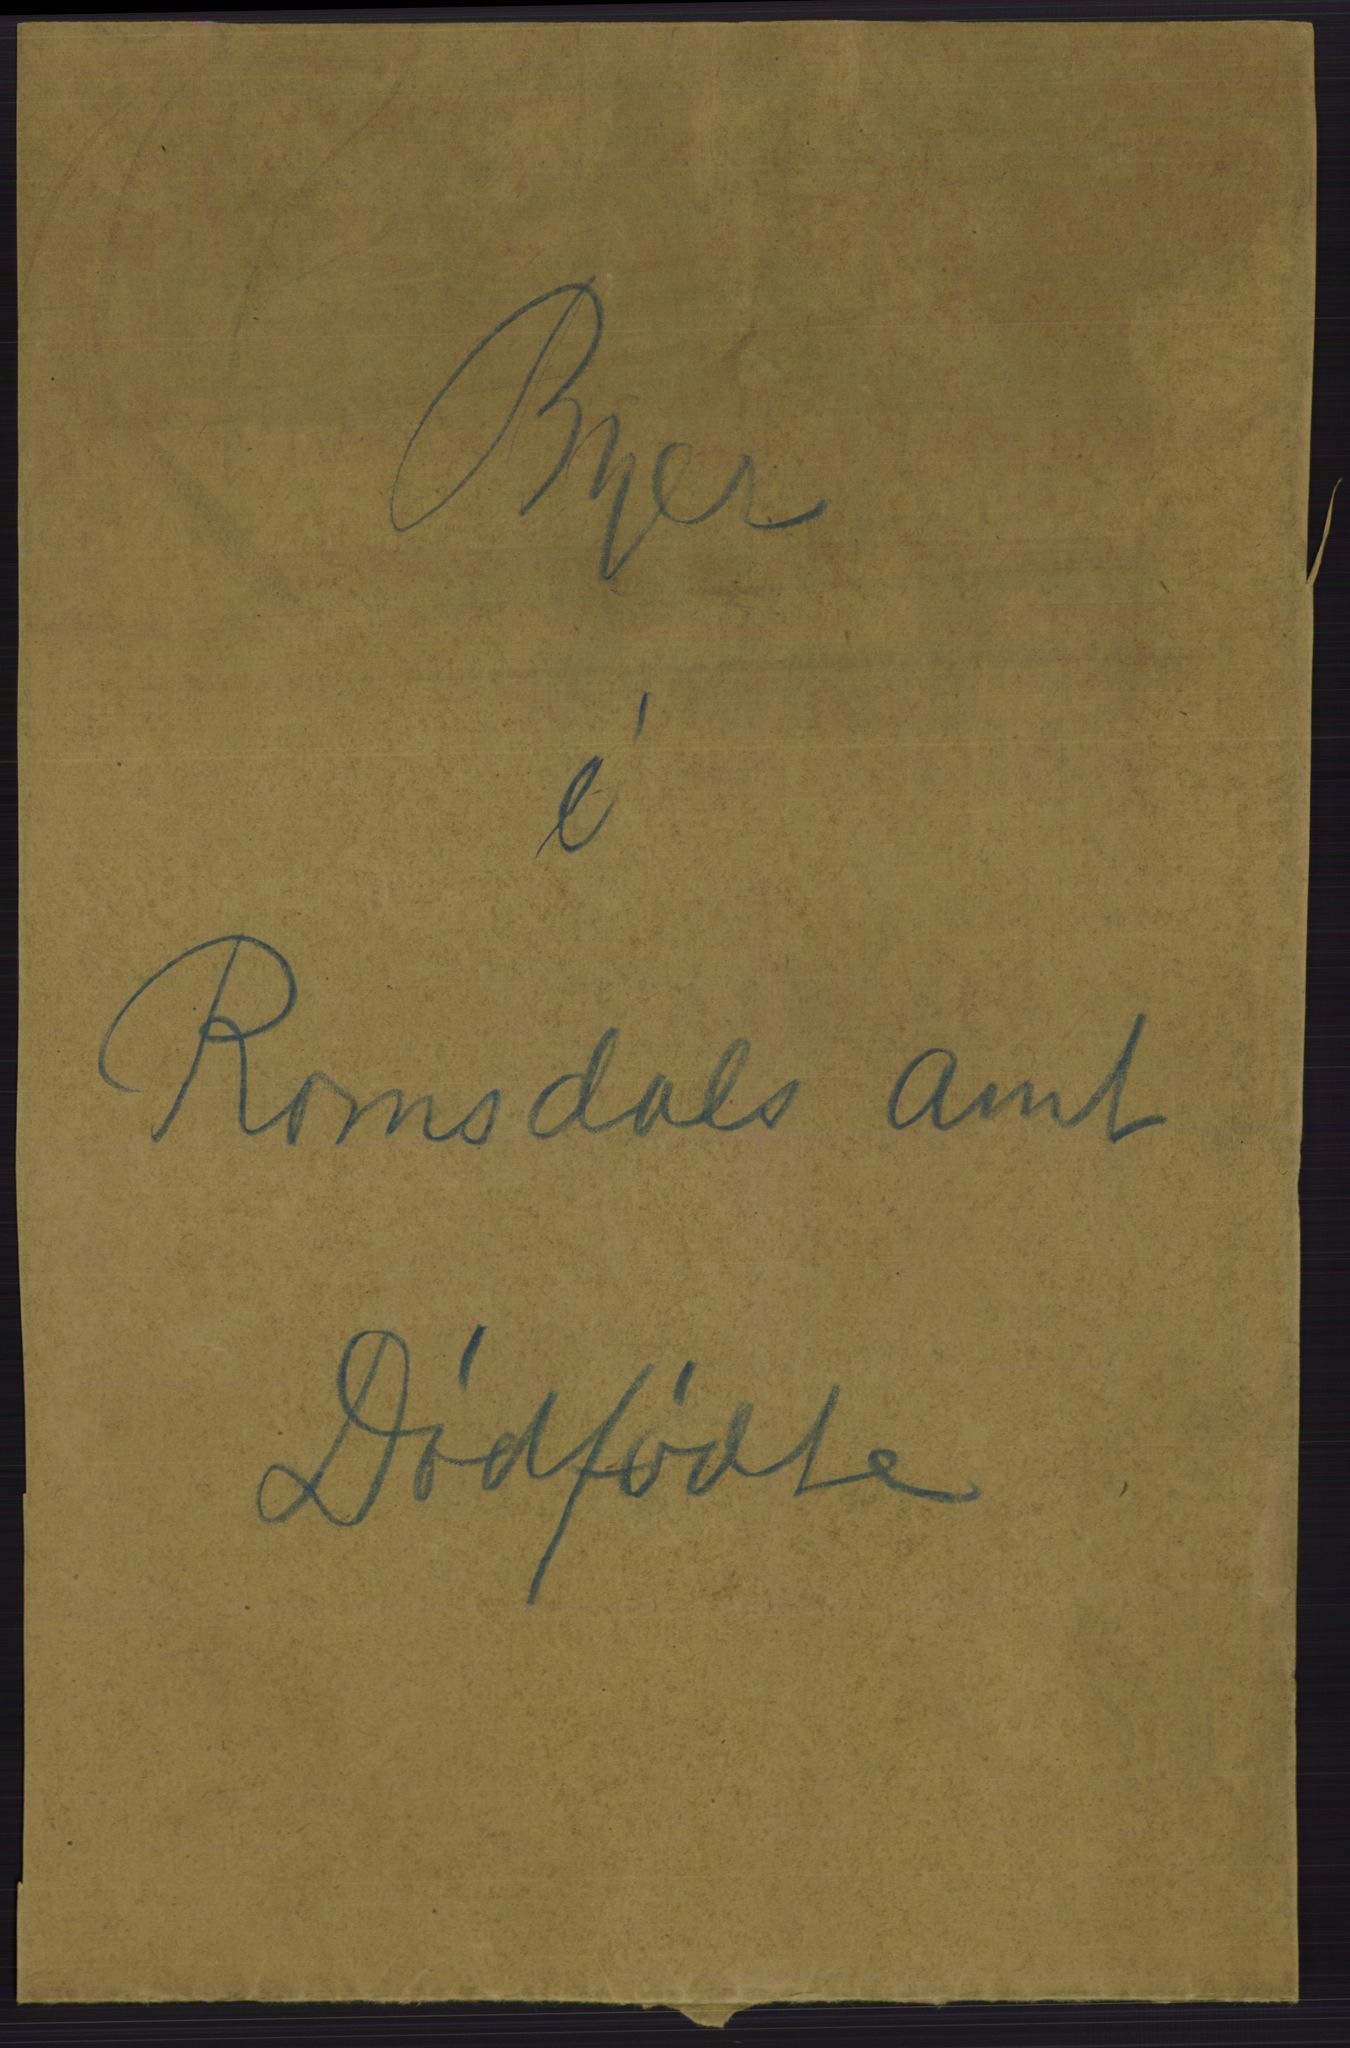 Byer
i
Romsdals amt
Dødfødte